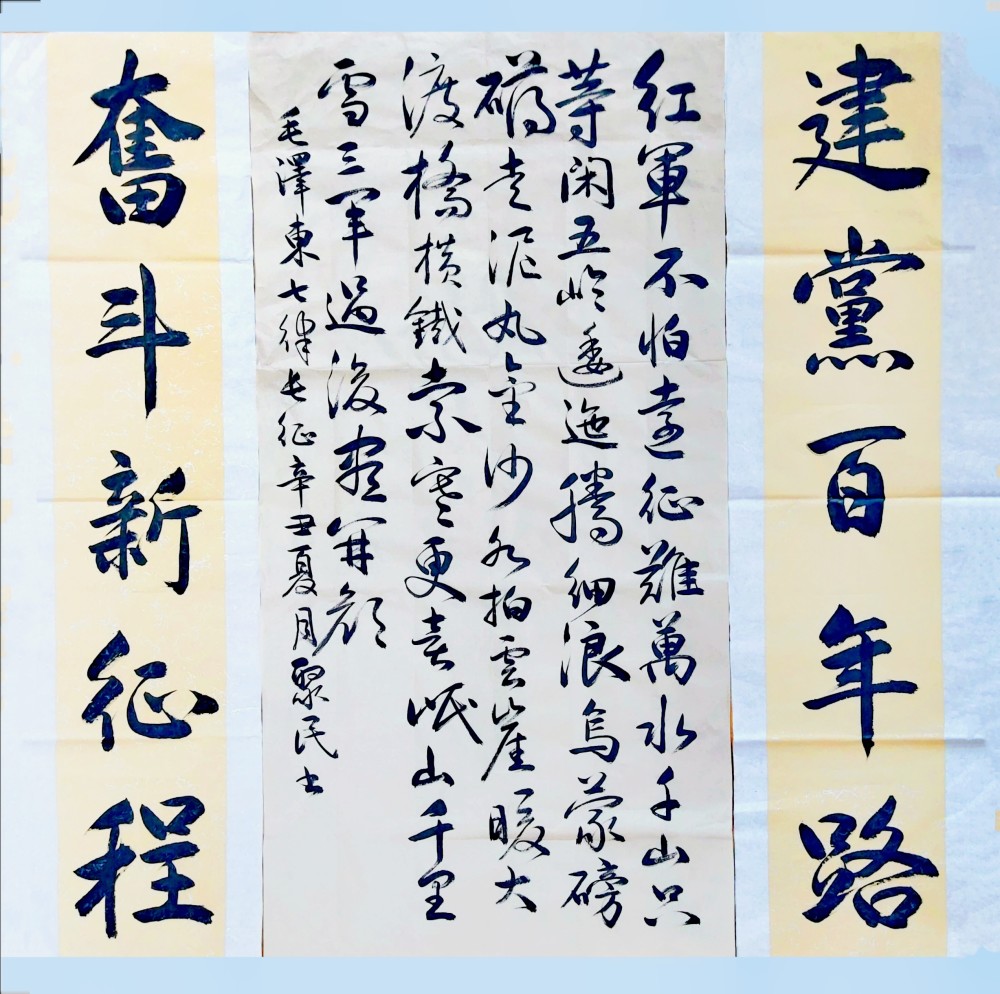 建黨百年路
红軍不怕遠征難萬水千山只
等闲五岭逶迤騰细浪烏蒙磅
礴走泥丸金沙水拍雲崖暖大
渡橋横鐵索寒更喜岷山千里
雪三軍過後盡開顔
毛澤東七律长征辛丑夏月聚民书
奮斗新征程